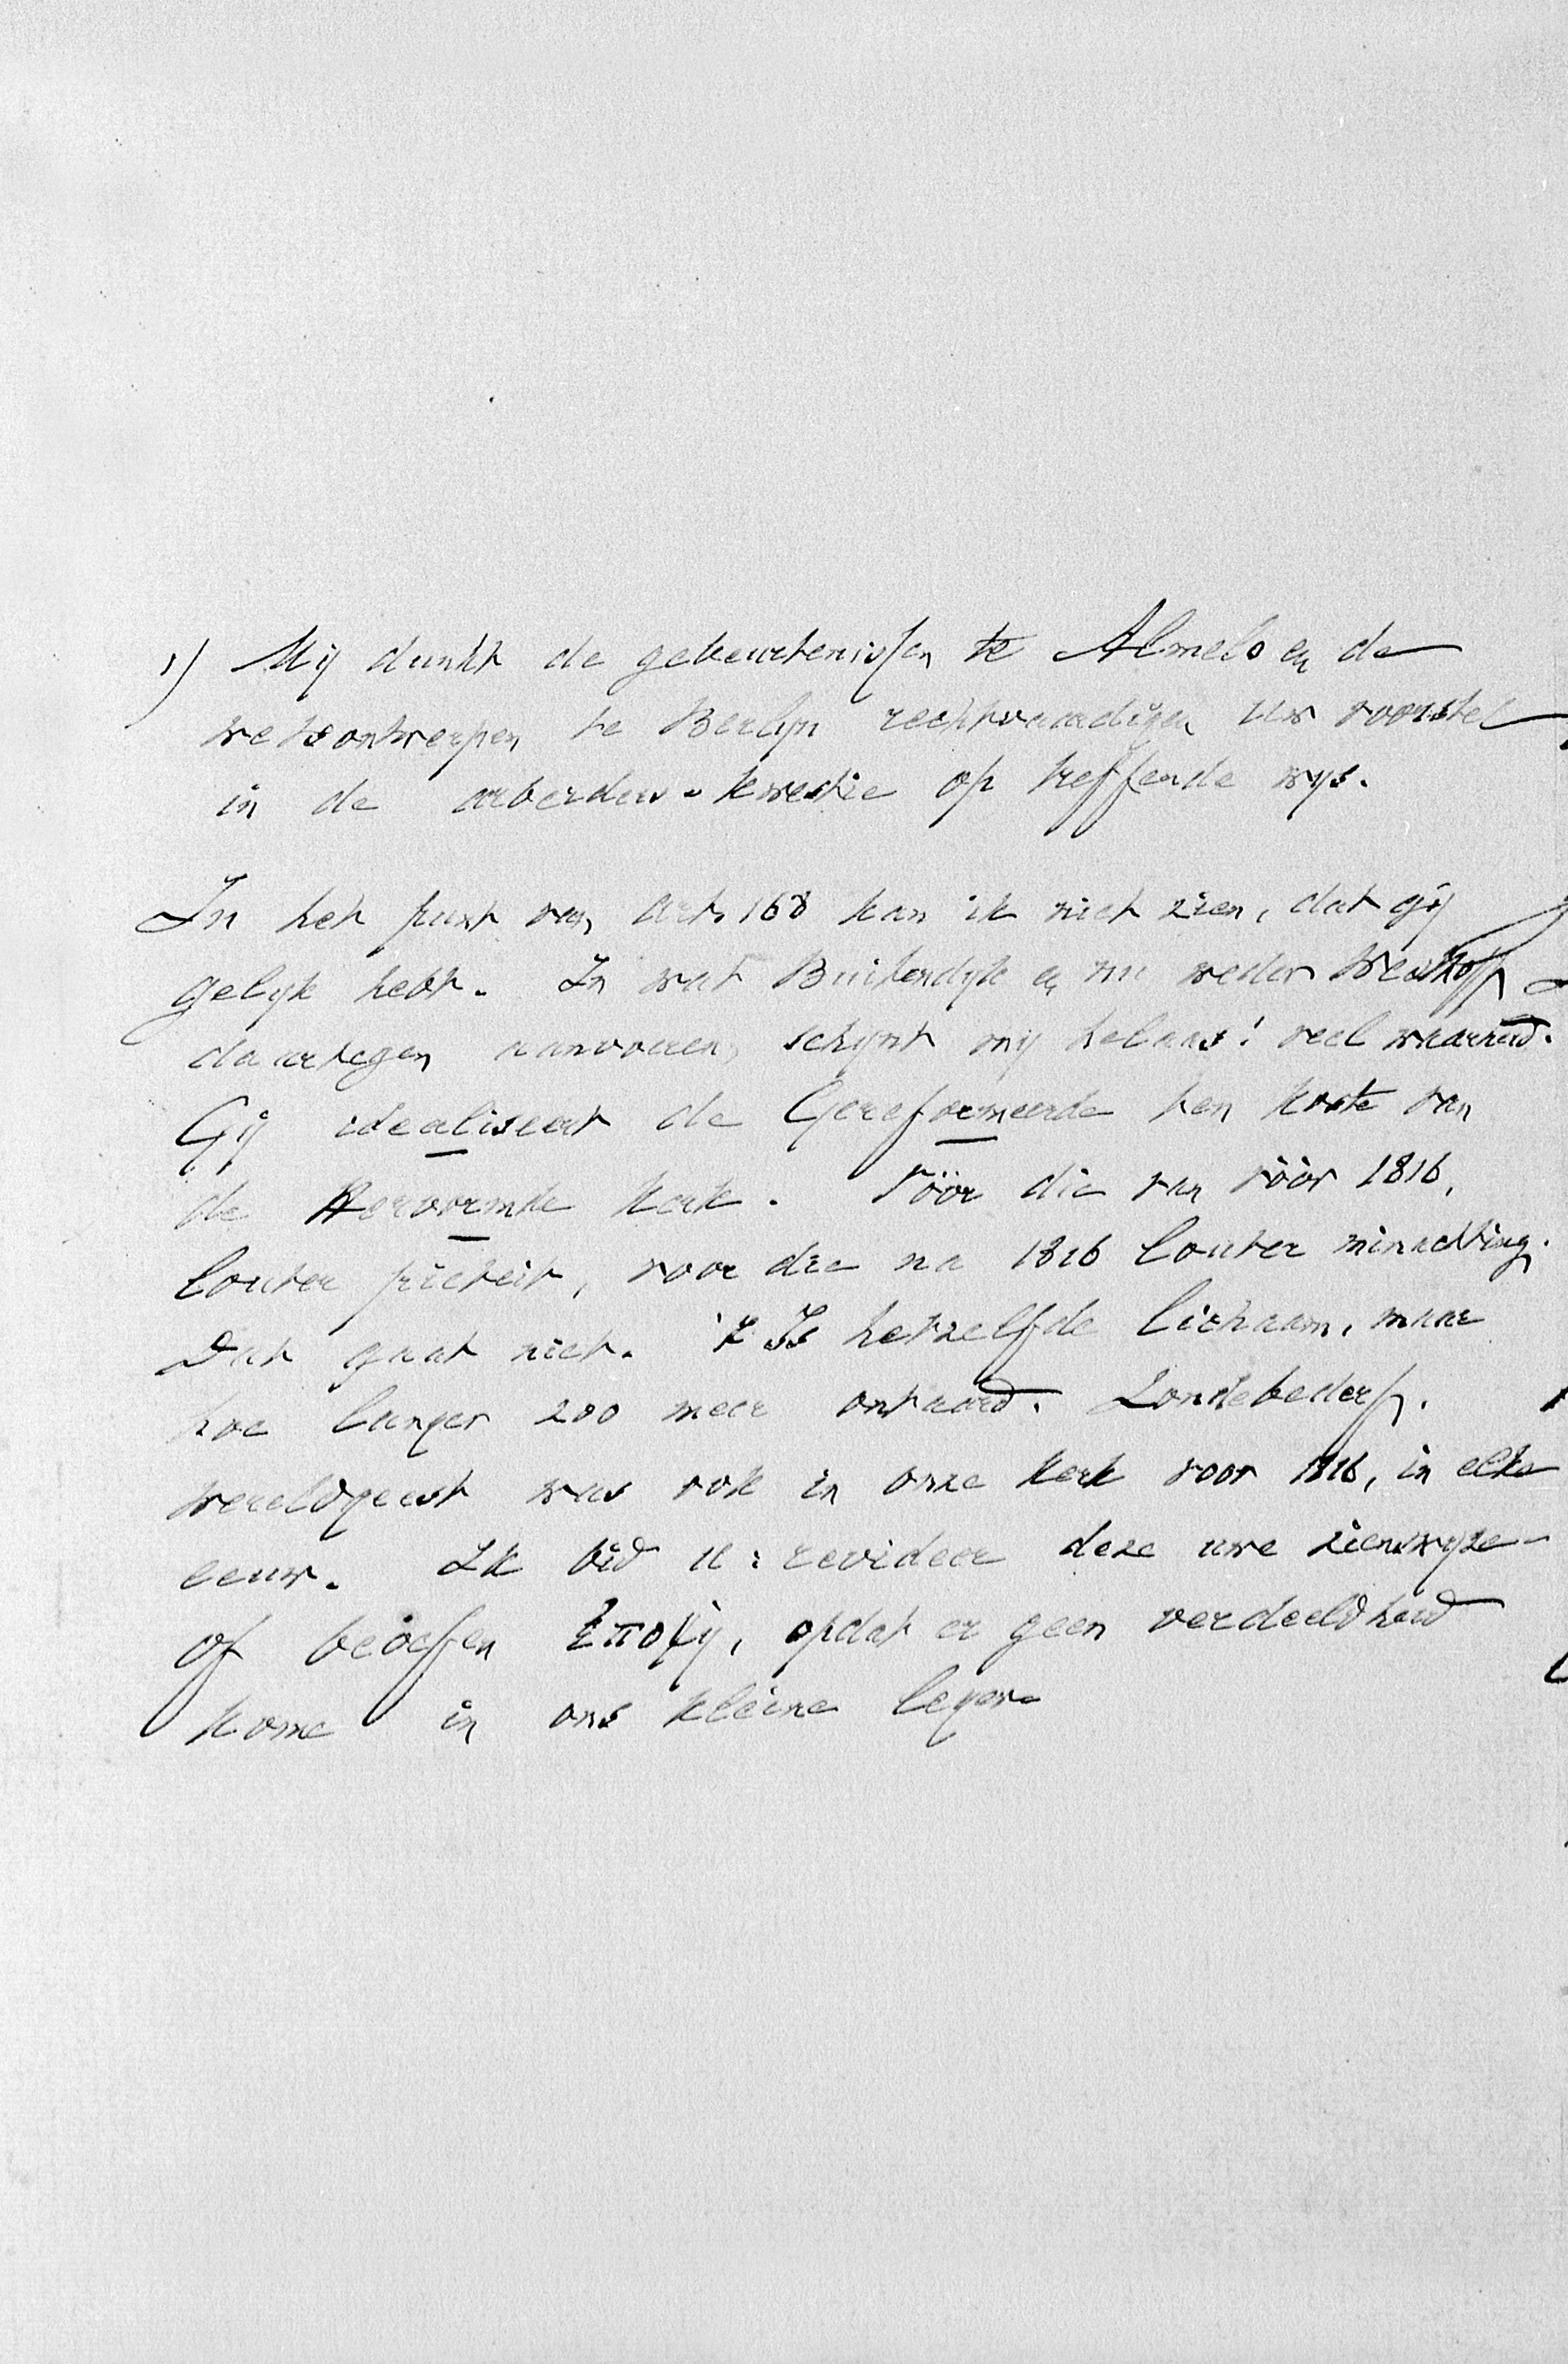 1) Mij dunkt de gebeurtenissen te Almelo en de
wetsontwerpen te Berlijn rechtvaardigen Uw voorstel
in de arbeiders-kwestie op treffende wijs.
In het punt van Art. 168 kan ik niet zien, dat gij
gelijk hebt. In wat Buitendijk en nu weder Westhoff
daartegen aanvoeren, schijnt mij helaas! veel waarheid.
Gij idealiseert de Gereformeerde ten koste van
de Hervormde Kerk. Vóór die van vóór 1816,
louter piëteit, voor die na 1816 louter minachting.
Dat gaat niet. 't Is hetzelfde lichaam, maar
hoe langer zoo meer ontaard. Zondebederf.
wereldgeest was ook in onze Kerk voor 1816, in elke
eeuw. Ik bid U: revideer deze uwe zienswijze
of beoefen ἐποχή, opdat er geen verdeeldheid
kome in ons kleine leger.